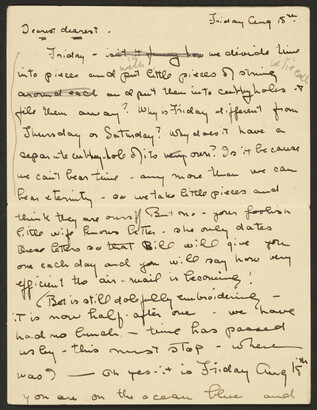 Friday Aug 15th
Dearest dearest.
Friday - isn't it funny how we divide time
into pieces and put little pieces of string
with
we tie each
around each and put them into cubbyholes - &
file them away? Why is Friday different from
Thursday or Saturday? Why does it have a
separate cubbyhole of its very own? Is it because
we can't bear time - any more than we can
bear eternity - so we take little pieces and
think they are ours / But no - your foolish
little wife knows better - she only dates
these letters so that Bill will give you
one each day and you will say how very
efficient the air-mail is becoming!
(Bet is still dolefully embroidering -
it is now half-after one - we have
had no lunch - time has passed
us by - this must stop - where
was I - oh yes - it is Friday Aug 15th
you are on the ocean blue and